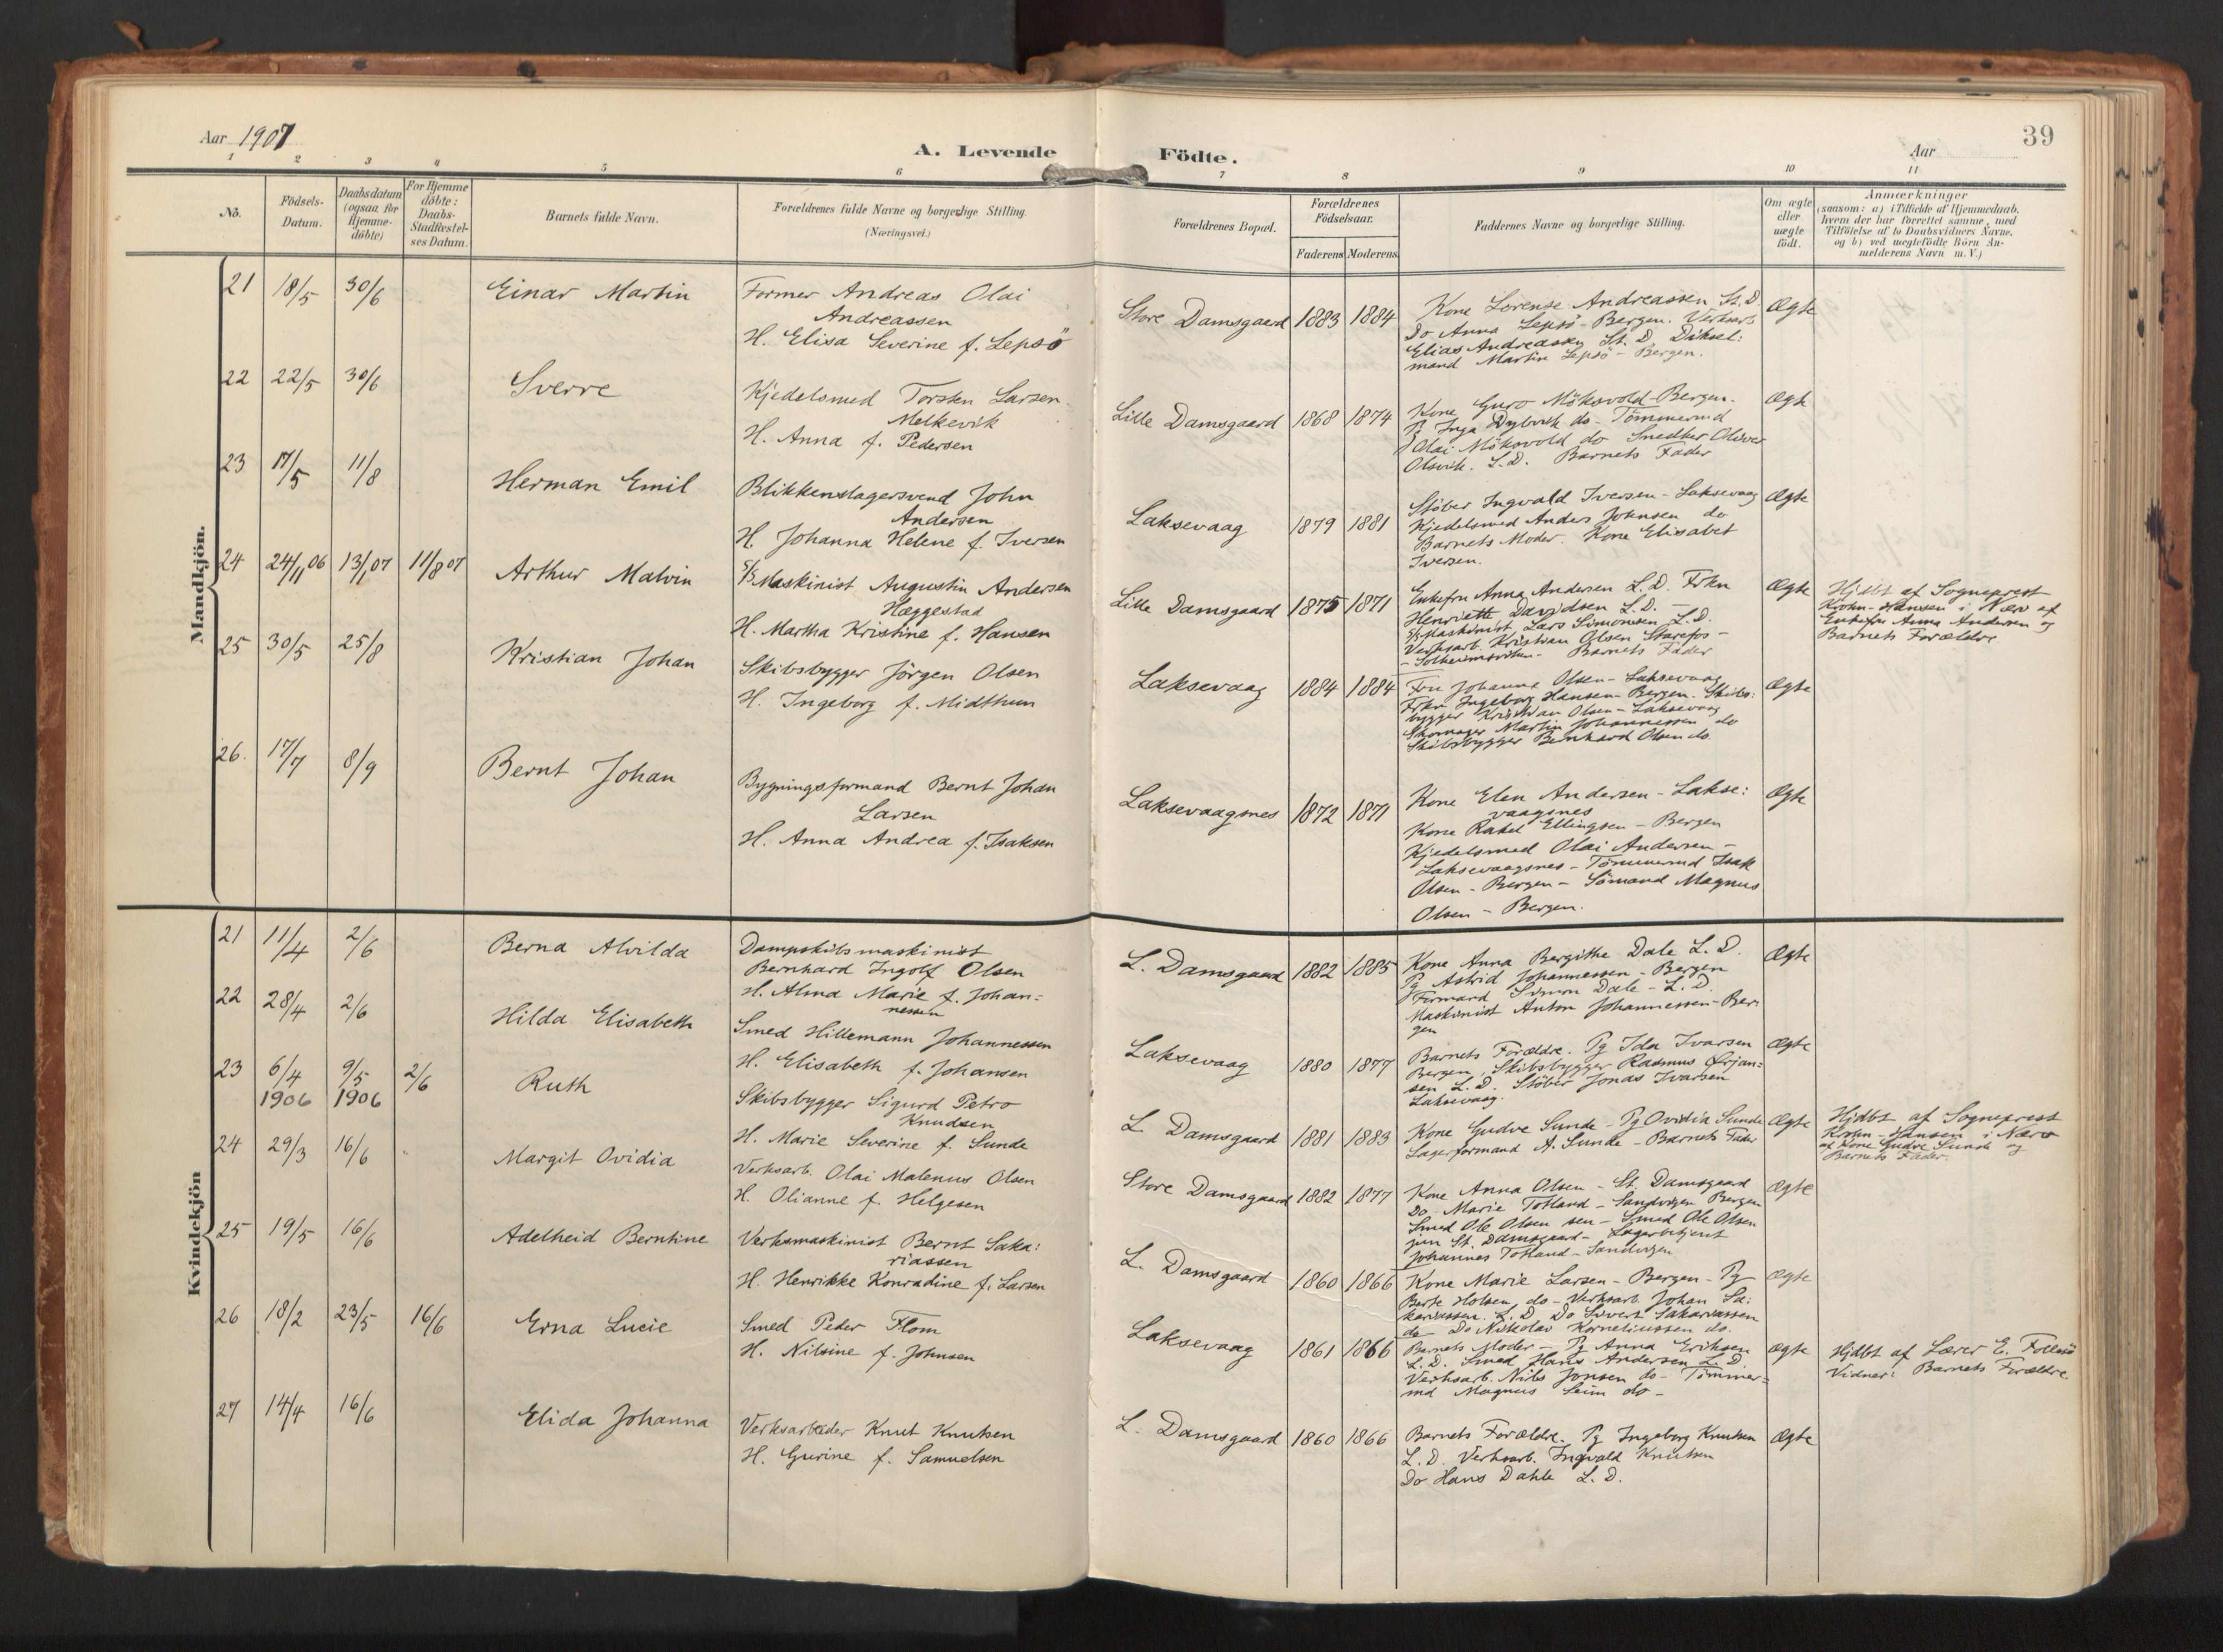 Aar 1907
A. Levende Födte.
Aar
39
1 2 3 4 5 6 7 8 9 10 11
No.
Födsels-
Datum.
Daabsdatum
(ogsaa for
Hjemme-
döbte)
For Hjemme
döbte:
Daabs-
Stadfæstel-
ses Datum.
Barnets fulde Navn.
Forældrenes fulde Navne og borgerlige Stilling.
(Næringsvei.)
Forældrenes Bopæl.
Forældrenes
Födselsaar.
Faderens Moderens
Faddernes Navne og borgerlige Stilling.
Om ægte
eller
uægte
födt.
Anmærkninger
(saasom: a) i Tilfælde af Hjemmedaab,
hvem der har forrettet samme, med
Tilföielse af to Daabsvidners Navne,
og b) ved uægtefödte Börn An-
melderens Navn m.V.)
Mandkjön.
21 18/5 30/6 Einar Martin
Former Andreas Olai
Andreassen
H. Elisa Severine f. Lepsö
Store Damsgaard 1883 1884
Kone Lorense Andreassen St. D
Do Anna Lepsö - Bergen. Verksarb
Elias Andreassen St. D. Dæksel:
mand Martin Lepsö - Bergen.
Ægte
22 22/5 30/6 Sverre
Kjedelsmed Torsten Larsen
Melkevik
H. Anna f. Pedersen
Lille Damsgaard 1868 1874
Kone Guro Möksvold Bergen.
Pg Inga Dybvik do - Tömmermd
Olai Möksvold do Snedker Oliver
Olsvik. L.D. Barnets Fader
Ægte
23 17/5 11/8 Herman Emil
Blikkenslagersvend John
Andersen
H. Johanna Helene f. Iversen
Laksevaag 1879 1881
Støber Ingvald Iversen - Laksevaag
Kjedelsmed Anders Johnsen do
Barnets Moder. Kone Elisabet
Iversen.
Ægte
24 24/11 06 13/1 07 11/8 07 Arthur Malvin
S/S Maskinist Augustin Andersen
Hæggestad
H. Martha Kristine f. Hansen
Lille Damsgaard 1875 1871
Enkefru Anna Andersen L.D. Frkn
Henriette Davidsen L.D. -
S/S Maskinist Lars Simonsen L.D.
Verksarb. Kristian Olsen Starefos -
- Solheimsviken - Barnets Fader
Ægte
Hjdbt af Sogneprest
Krohn-Hansen i Nærv af
Enkefru Anna Andersen og
Barnets Forældre
25 30/5 25/8 Kristian Johan
Skibsbygger Jörgen Olsen
H. Ingeborg f. Midthun
Laksevaag 1884 1884
Fru Johanna Olsen - Laksevaag
Frkn Ingeborg Hansen - Bergen. Skibs:
bygger Kristian Olsen - Laksevaag
Skomager Martin Johannessen do
Skibsbygger Bernhard Olsen do
Ægte
26. 17/7 8/9 Bernt Johan
Bygningsformand Bernt Johan
Larsen
H. Anna Andrea f. Isaksen
Laksevaagsnes 1872 1871
Kone Elen Andersen - Lakse:
vaagsnes
Kone Rakel Ellingsen - Bergen
Kjedelsmed Olai Andersen -
Laksevaagsnes - Tömmermd Isak
Olsen - Bergen - Sömand Magnus
Olsen - Bergen.
Ægte
Kvindekjön
21 11/4 2/6 Berna Alvilda
Dampskibsmaskinist
Bernhard Ingolf Olsen
H. Alma Marie f. Johan=
nessen
L. Damsgaard 1882 1885
Kone Anna Bergithe Dale L.D.
Pg Astrid Johannessen - Bergen
Formand Simon Dale - L.D.
Maskinist Anton Johannessen - Ber:
gen
Ægte
22 28/4 2/6 Hilda Elisabeth
Smed Hillemann Johannessen
H. Elisabeth f. Johansen
Laksevaag 1880 1877
Barnets Forældre. Pg Ida Ivarsen
Bergen, Skibsbygger Rasmus Ørjan=
sen L.D. Stöber Jonas Ivarsen
Laksevaag.
Ægte
23 6/4 1906 9/5 1906 2/6 Ruth
Skibsbygger Sigurd Petro
Knudsen
H. Marie Severine f. Sunde
L. Damsgaard 1881 1883
Kone Gudve Sunde - Pg Ovidia Sunde
Lagerformand A. Sunde - Barnets Fader
Ægte
Hjdbt af Sogneprest
Krohn-Hansen i Nærv
af Kone Gudve Sunde og
Barnets Fader.
24 29/3 16/6 Margit Ovidia
Verksarb. Olai Malenus Olsen
H. Olianne f. Helgesen
Store Damsgaard 1882 1877
Kone Anna Olsen - St. Damsgaard
Do. Marie Totland - Sandvigen Bergen
Smed Ole Olsen sen - Smed Ole Olsen
jun St. Damsgaard - Lagerbetjent
Johannes Totland - Sandvigen
Ægte
25 19/5 16/6 Adelheid Berntine
Verksmaskinist Bernt Saka:
riassen
H. Henrikke Konradine f. Larsen
L. Damsgaard 1860 1866
Kone Marie Larsen - Bergen - Pg
Berte Holsen do - Verksarb. Johan Sa:
kariassen L.D. Do Sivert Sakariassen
do Do Nikolas Korneliussen do.
Ægte
26 18/2 23/5 16/6 Erna Lucie
Smed Peder Flom
H. Nilsine f. Johnsen
Laksevaag 1861 1866
Barnets Moder - Pg Anna Eriksen
L.D. Smed Hans Andersen L.D.
Verksarb. Nils Jonsen do - Tömmer=
md Magnus Leim do -
Ægte
Hjdbt af Lærer E. Follesö
Vidner: Barnets Forældre.
27 14/4 16/6 Elida Johanna
Verksarbeider Knut Knutsen
H. Gurine f. Samuelsen
L. Damsgaard 1860 1866
Barnets Forældre. Pg Ingeborg Knutsen
L.D. Verksarb. Ingvald Knutsen
Do Hans Dahle L.D.
Ægte